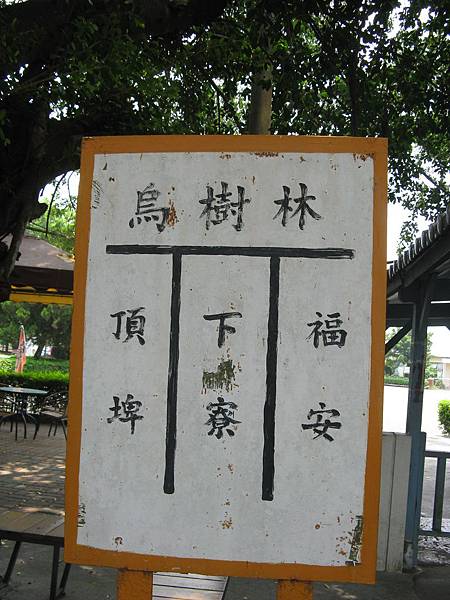 烏樹林
頂埤
下寮
福安